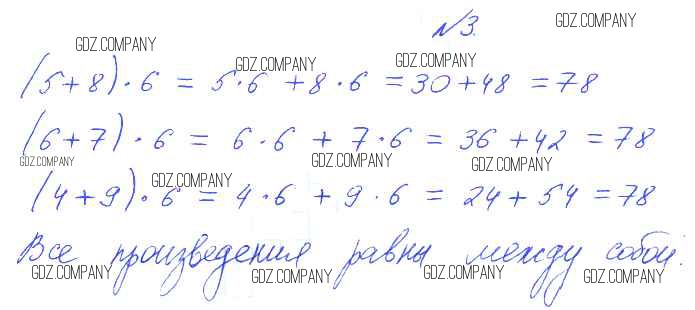 №3. GDZ.COMPANY
GDZ.COMPANY GDZ.COMPANY GDZ.COMPANY
(5+8)·6 = 5·6 +8·6 =30+48 =78
(6+7)·6 = 6·6 + 7·6 = 36 +42 =78
GDZ.COMPANY GDZ.COMPANY GDZ.COMPANY
GDZ.COMPANY
(4+9)·6 = 4·6 + 9·6 = 24+54 =78
Все произведения равны между собой.
GDZ.COMPANY GDZ.COMPANY GDZ.COMPANY GDZ.COMPANY